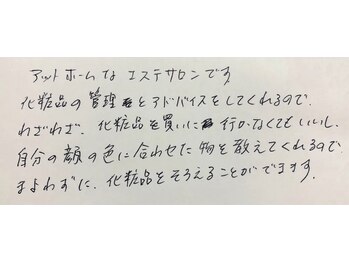 アットホームな エステサロンです
化粧品の管理とアドバイスをしてくれるので、
わざわざ、化粧品を買いに行かなくてもいいし、
自分の顔の色に合わせた物を教えてくれるので
まよわずに、化粧品をそろえることができます。